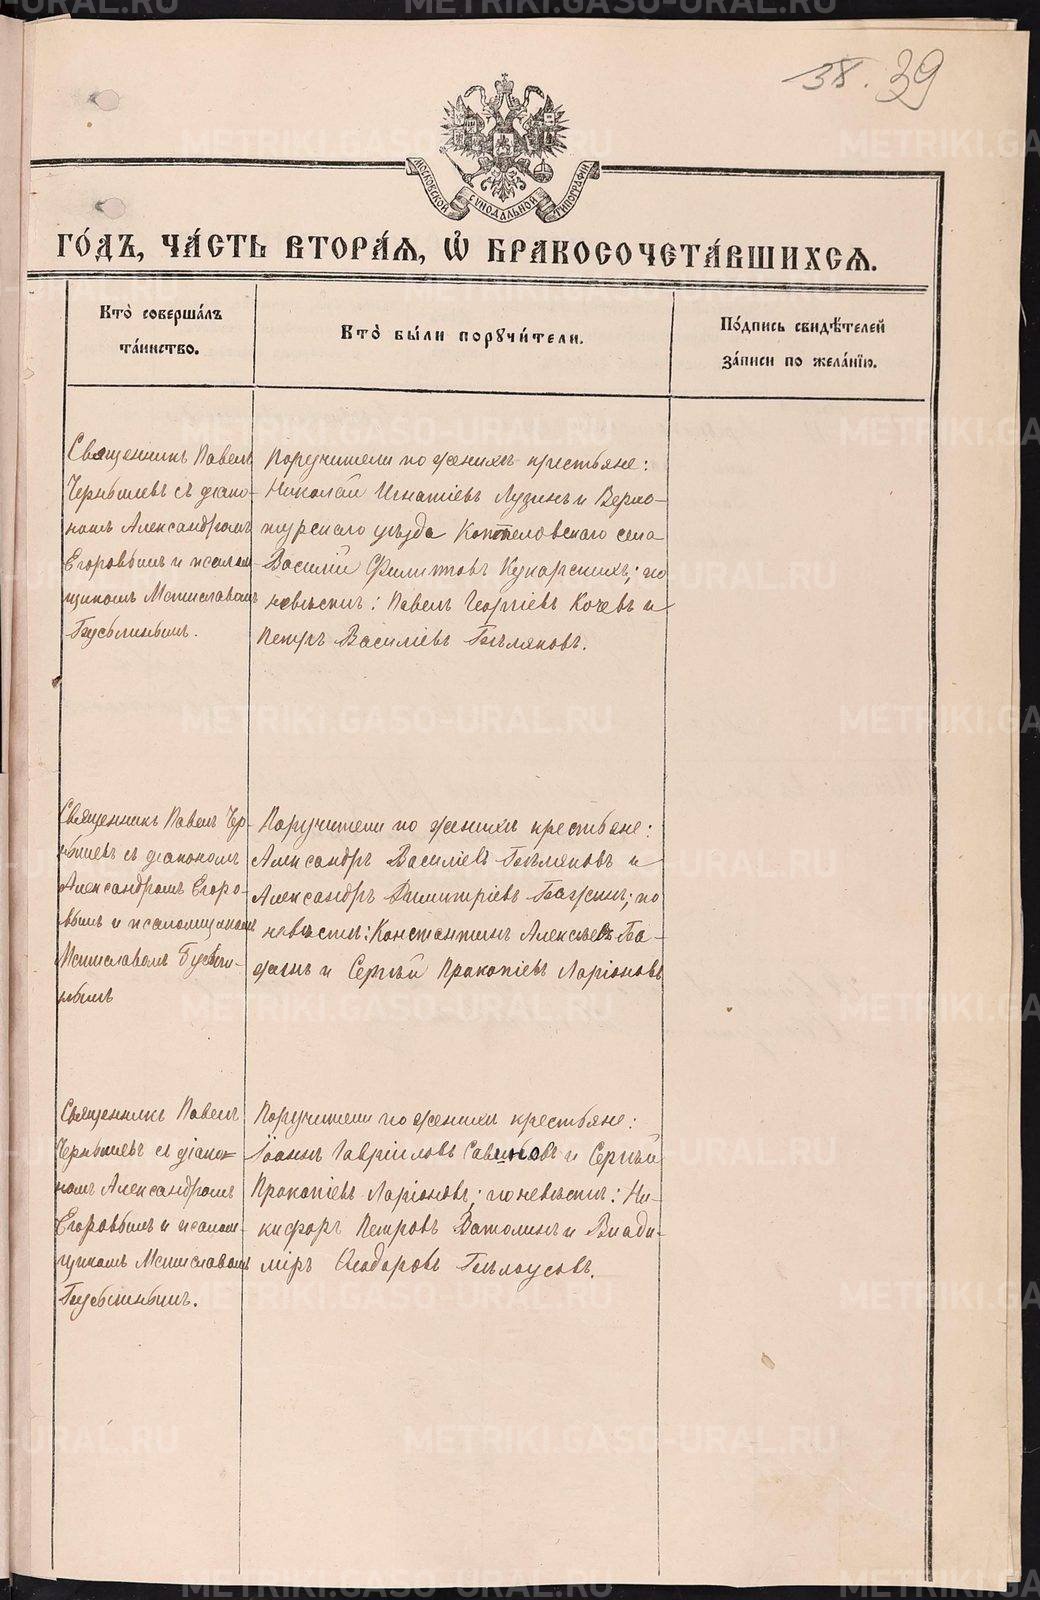 38. 39
МОСКОВСКОЙ СѴНОДАЛЬНОЙ ТИПОГРАФІИ
ГО́ДЪ, ЧА́СТЬ ВТОРА́Ѧ, Ѽ БРАКОСОЧЕТА́ВШИХСѦ.
Кто̀ соверша́лъ
та́инство.
Кто̀ бы́ли порꙋчи́тели.
По́дпись свидѣ́телей
за́писи по жела́нїю.
Священникъ Павелъ
Чернышевъ съ діако-
номъ Александромъ
Егоровымъ и псалом-
щикомъ Мстиславомъ
Поручители по женихѣ крестьяне:
Николай Игнатіевъ Лузинъ и Верхо-
турскаго уѣзда Коптеловскаго села
Василій Филипповъ Кукарскихъ; по
невѣстѣ: Павелъ Георгіевъ Кочевъ и
Петръ Василіевъ Бѣляковъ.
Священникъ Павелъ Чер-
нышевъ съ діакономъ
Александромъ Егоро-
вымъ и псаломщикомъ
Мстиславомъ
Поручители по женихѣ крестьяне:
Александръ Василіевъ Бѣляковъ и
Александръ Димитріевъ Бажинъ; по
невѣстѣ: Константинъ Алексѣевъ Ба-
жинъ и Сергѣй Прокопіевъ Ларіоновъ
Священникъ Павелъ
Чернышевъ съ діако-
номъ Александромъ
Егоровымъ и псалом-
щикомъ Мстиславомъ
Поручители по женихѣ крестьяне:
Іоаннъ Гавріиловъ Савиновъ и Сергѣй
Прокопіевъ Ларіоновъ; по невѣстѣ: Ни-
кифоръ Петровъ Ватолинъ и Влади-
міръ Ѳеодоровъ Бѣлоусовъ.
METRIKI.GASO-URAL.RU